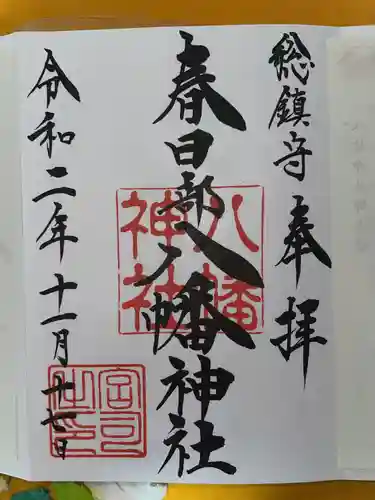 総鎮守 奉拝
春日部八幡神社
令和二年十一月十七日
八幡神社
宮司之印